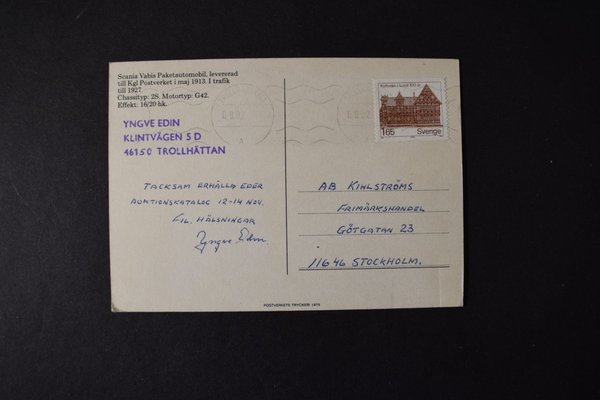 Scania Vabis Paketautomobil, levererad
till Kgl Postverket i maj 1913. I trafik
till 1927.
Chassityp: 2S. Motortyp: G42.
Effekt: 16/20 hk.
YNGVE EDIN
KLINTVÄGEN 5 D
46150 TROLLHÄTTAN
TACKSAM ERHÅLLA EDER
AUKTIONSKATALOG 12-14 NOV.
HÄLSNINGAR
Yngve Edin
POSTVERKETS TRYCKERI 1975
Kulturen i Lund 100 år
165 Sverige
AB KIHLSTRÖMS
FRIMÄRKSHANDEL
GÖTGATAN 23
11646 STOCKHOLM.